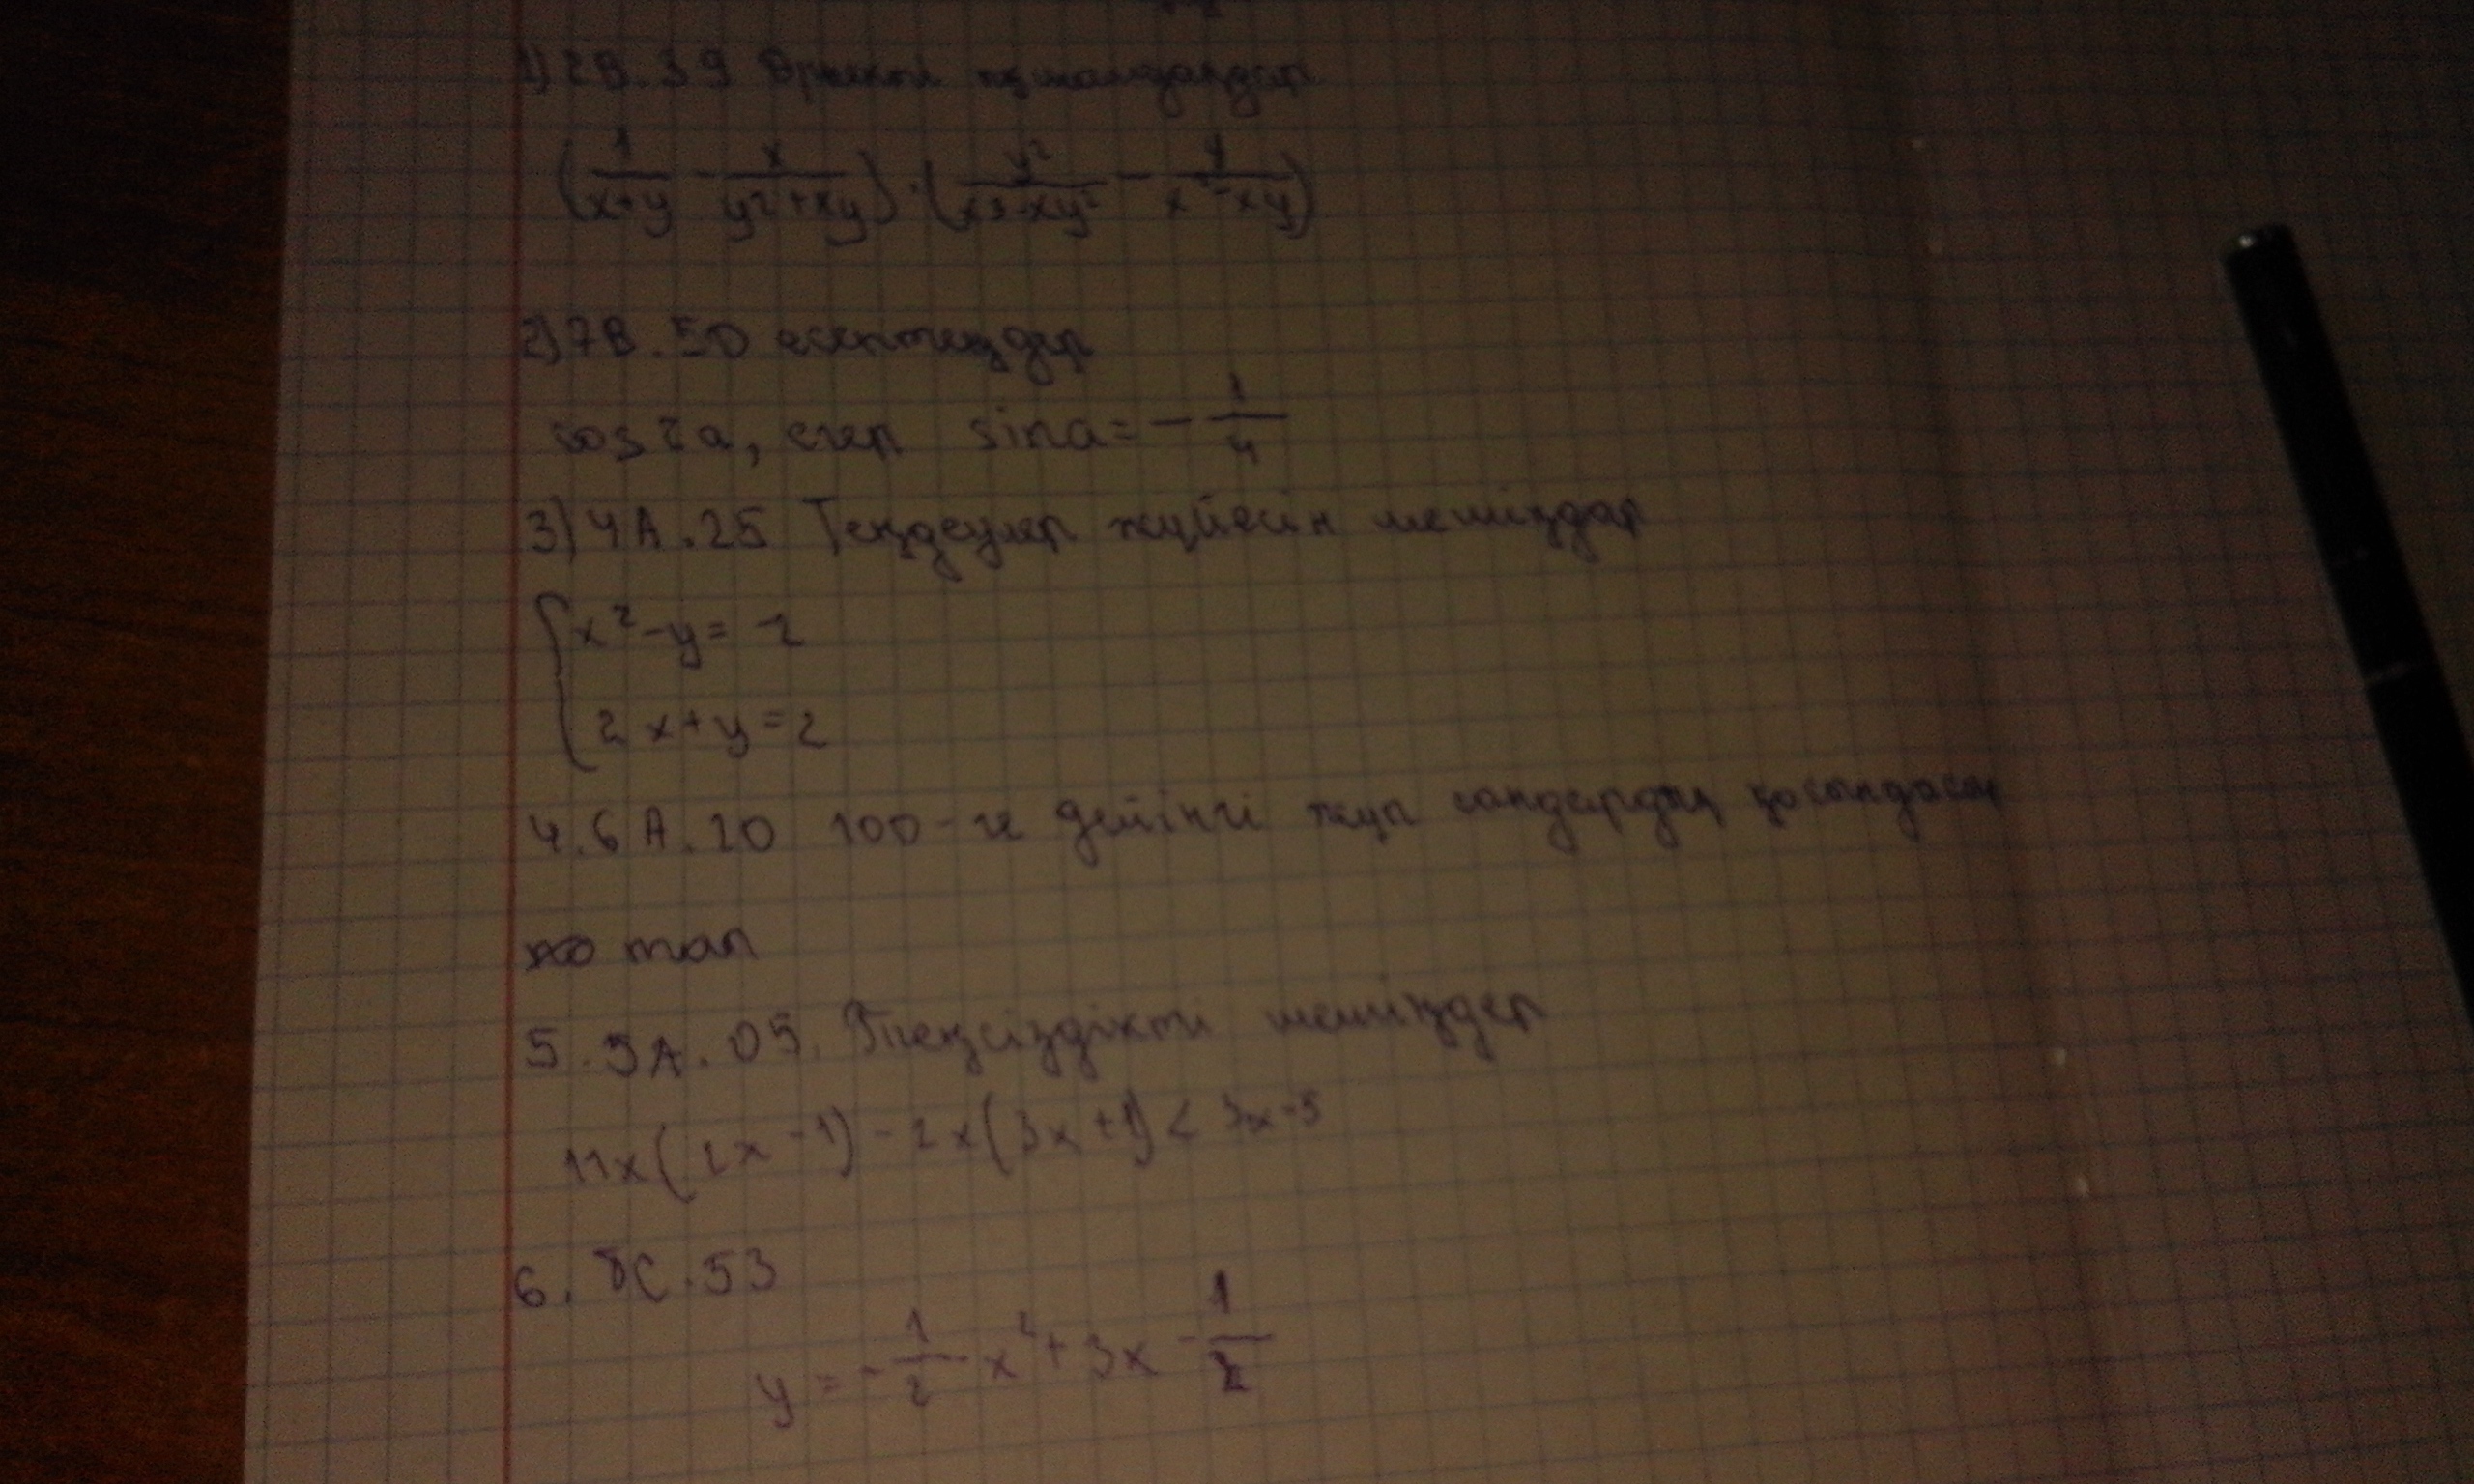 1) 2B.39 Өрнекті ықшамдаңдар
(1/(x+y) - x/(y²+xy)) · (y²/(x³-xy²) - y/(x²-xy))
2) 7B.50 есептеңдер
cos2a, егер sina = -1/4
3) 4A.25 Теңдеулер жүйесін шешіңдер
x²-y=-2
2x+y=2
4.6A.20 100-ге дейінгі жұп сандардың қосындысын
тап
5.5A.05. Теңсіздікті шешіңдер
11x(2x-1)-2x(3x+1)<3x-5
6. 8C.53
y=-1/2 x²+3x-1/2